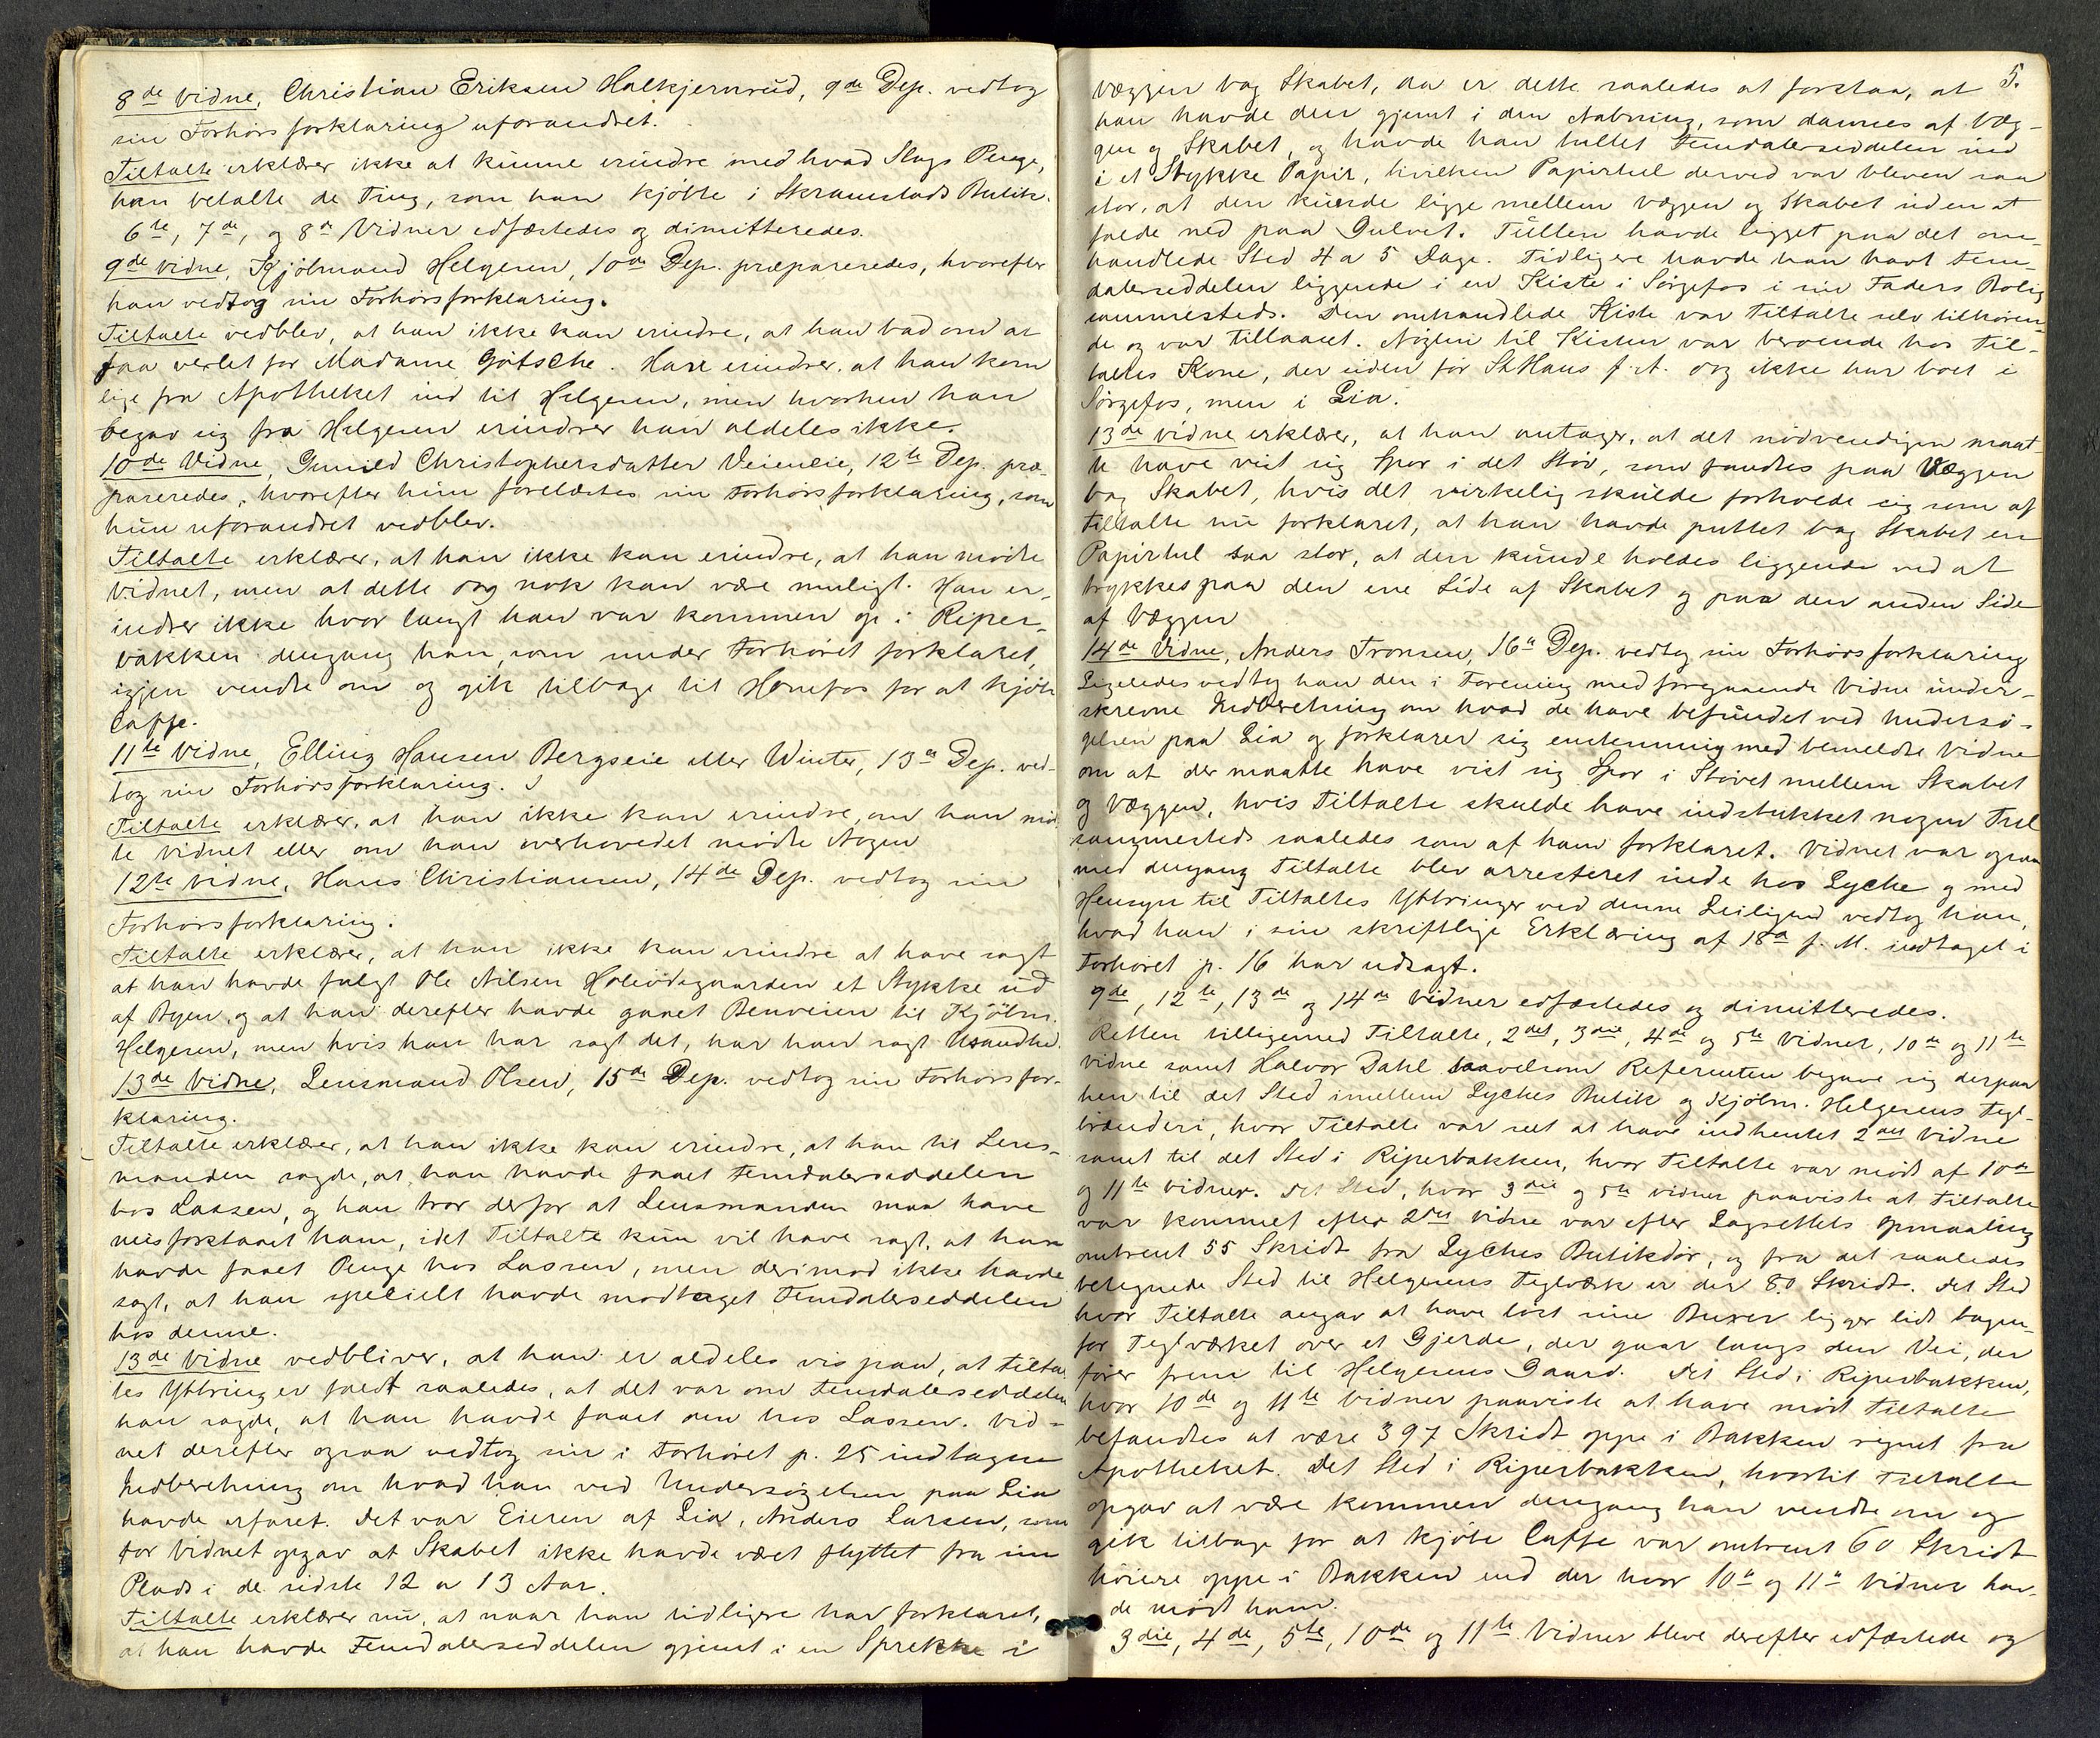 8de Vidne, Christian Eriksen Halkjernrud, 9de Dep. vedtog
sin Forhørsforklaring uforandret.
Tiltalte erklærer ikke at kunne erindre med hvad Slags Penge,
han betalte de Ting, som han kjøbte i Skramstads Butik.
6te, 7de, og 8de Vidner edfæstedes og dimitteredes.
9de Vidne, Kjøbmand Helgesen, 10de Dep. præpareredes, hvorefter
han vedtog sin Forhørsforklaring.
Tiltalte vedblev, at han ikke kan erindre, at han bad om at
faa verlet for Madame Götsche. Han erindrer, at han kom
lige fra Apotheket ind til Helgesen, men hvorhen han
begav sig fra Helgesen erindrer han aldeles ikke.
10de Vidne, Gunild Christophersdatter Veieneie, 12te Dep. præ-
pareredes, hvorefter hun forelæstes sin Forhørsforklaring, som
hun uforandret vedblev.
Tiltalte erklærer, at han ikke kan erindre, at han mødte
Vidnet, men at dette og nok kan være muligt. Han er-
indrer ikke hvor langt han var kommen op i Riper-
bakken dengang han, som under Forhøret forklaret,
igjen vendte om og gik tilbage til Hønefos for at kjøbe
Caffe.
11te Vidne, Elling Hansen Bergseie eller Winter, 13de Dep. ved-
tog sin Forhørsforklaring.
Tiltalte erklærer, at han ikke kan erindre, om han mød-
te Vidnet eller om han overhovedet mødte Nogen
12te Vidne, Hans Christiansen, 14de Dep. vedtog sin
Forhørsforklaring.
Tiltalte erklærer, at han ikke kan erindre at have sagt
at han havde fulgt Ole Nilsen et Stykke ud
af Byen, og at han derefter havde gaaet Benveien til Kjøbm.
Helgesen, men hvis han har sagt det, har han sagt Usandhed.
13de Vidne, Lensmand Olsen, 15de Dep. vedtog sin Forhørsfor-
klaring.
Tiltalte erklærer, at han ikke kan erindre, at han til Lens-
manden sagde, at han havde faaet Femdalerseddelen
hos Lassen, og han tror derfor at Lensmanden maa have
misforstaaet ham, idet Tiltalte kun vil have sagt, at han
havde faaet Penge hos Lassen, men derimod ikke havde
sagt, at han specielt havde modtaget Femdalerseddelen
hos denne.
13de Vidne vedbliver, at han er aldeles vis paa, at Tiltal-
tes Yttringer faldt saaledes, at det var om Femdalerseddelen
han sagde, at han havde faaet den hos Lassen. Vid-
net derefter ogsaa vedtog sin i Forhøret p. 25 indtagne
Indberetning om hvad han ved Undersøgelsen paa Lia
havde erfaret. Det var Eieren af Lia, Anders Larsen, som
for Vidnet opgav at Skabet ikke havde været flyttet fra sin
Plads i de sidste 12 a 13 Aar.
Tiltalte erklærer nu, at naar han tidligere har forklaret,
at han havde Femdalerseddelen gjemt i en Sprekke i
5.
Væggen bag Skabet, da er dette saaledes at forstaa, at
han havde den gjemt i den Aabning, som dannes af Væg-
gen og Skabet, og havde han tullet Femdalerseddelen ind
i et Stykke Papir, hvilken Papirtul derved var bleven saa
stor, at den kunde ligge mellem Væggen og Skabet uden at
falde ned paa Gulvet. Tullen havde ligget paa det om-
handlede Sted 4 a 5 Dage. Tidligere havde han havt Fem-
dalerseddelen liggende i en Kiste i Sørgefos i sin Faders Bolig
sammesteds. Den omhandlede Kiste var Tiltalte selv tilhøren-
de og var tillaaset. Nøglen til Kisten var beroende hos Til-
taltes Kone, der siden før StHans f. A. og ikke har boet i
Sørgefos, men i Lia.
13de Vidne erklærer, at han antager, at det nødvendigen maat-
te have vist sig Spor i det Støv, som fandtes paa Væggen
bag Skabet, hvis det virkelig skulde forholde sig som af
Tiltalte nu forklaret, at han havde puttet bag Skabet en
Papirtul saa stor, at den kunde holdes liggende ved at
trykkes paa den ene Side af Skabet og paa den anden Side
af Væggen
14de Vidne, Anders Tronsen, 16de Dep. vedtog sin Forhørsforklaring
Ligeledes vedtog han den i Forening med foregaaende Vidne under-
skrevne Indberetning om hvad de have befundet ved Undersø-
gelsen paa Lia og forklarer sig enstemmig med bemeldte Vidne
om at der maatte have vist sig Spor i Støvet mellem Skabet
og Væggen, hvis Tiltalte skulde have indstukket nogen Tul
sammesteds saaledes som af ham forklaret. Vidnet var ogsaa
med dengang Tiltalte blev arresteret inde hos Lyche og med
Hensyn til Tiltaltes Yttringer ved denne Leilighed vedtog han,
hvad han i sin skriftlige Erklæring af 18de f. M. indtaget i
Forhøret p. 16 har udsagt.
9de, 12te, 13de og 14de Vidner edfæstedes og dimitteredes.
Retten tilligemed Tiltalte, 2det, 3die, 4de og 5te Vidner, 10de og 11te
Vidne samt Halvor Dahl saavelsom Referenten begave sig derpaa
hen til det Sted imellem Lyches Butik og Kjøbm. Helgesens Tegl-
brænderi, hvor Tiltalte var seet at have indhentet 2det Vidne
samt til det Sted i Riperbakken, hvor Tiltalte var mødt af 10de
og 11te Vidner. Det Sted, hvor 3die og 5te Vidner paaviste at Tiltalte
var kommet efter 2det Vidne var efter Lagrettets Opmaaling
omtrent 55 Skridt fra Lyches Butikdør, og fra det saaledes
betegnede Sted til Helgesens Teglværk er der 80 Skridt. Det Sted
hvor Tiltalte angav at have løst sine Buxer ligger lidt bagen-
for Teglværket over et Gjerde, der gaar langs den Vei, der
fører frem til Helgesens Gaard. Det Sted i Riperbakken,
hvor 10de og 11te Vidner paaviste at have mødt Tiltalte
befandtes at være 397 Skridt oppe i Bakken regnet fra
Apotheket. Det Sted i Riperbakken, hvortil Tiltalte
opgav at være kommen dengang han vendte om og
gik tilbage for at kjøbe Caffe var omtrent 60 Skridt
høiere oppe i Bakken end der hvor 10de og 11te Vidner hav-
de mødt ham.
3die, 4de, 5te, 10de og 11te Vidner bleve derefter edfæstede og